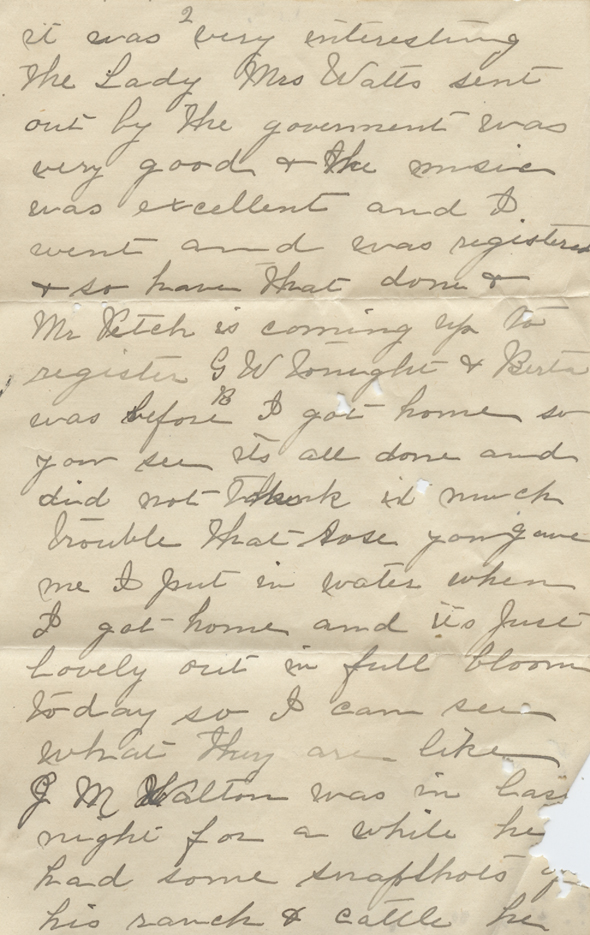 2
it was very interesting
the Lady Mrs Watts sent
out by the goverment was
very good & the music
was excellent and I
went and was registered
& so have that done &
Mr Petch is coming up to
register G W tonight & Berta
was before I got home so
you see its all done and
did not think it much
trouble that rose you gave
me I put in water when
I got home and its just
lovely out in full bloom
today so I can see
what they are like
G M Walton was in las
night for a while he
had some snapshots
his ranch & cattle he